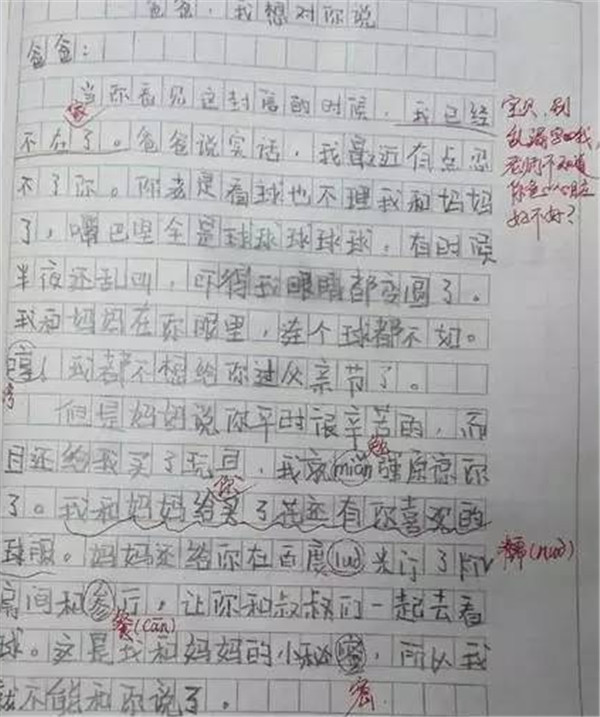 爸爸,我想对你说
爸爸:
当你看见这封信的时候,我已经
家
不在了。爸爸说实话,我最近有点忍
不了你。你老是看球也不理我和妈妈
了,嘴巴里全是球球球球球,有时候
半夜还乱叫,吓得我眼睛都变圆了。
我和妈妈在你眼里,连个球都不如。
哼!我都不想给你过父亲节了。
但是妈妈说你平时很辛苦的,而
且还给我买了玩具,我就mián强原谅你
勉
你
了。我和妈妈给买了花还有你喜欢的
球服。妈妈还给你在百度luò米订了
房间和参厅,让你和叔叔们一起去看
餐(cān)
球。这是我和妈妈的小秘蜜,所以我
密
就不能和你说了。
宝贝,别
乱漏字
老师不知道
你
好不好?
糯(nuò)